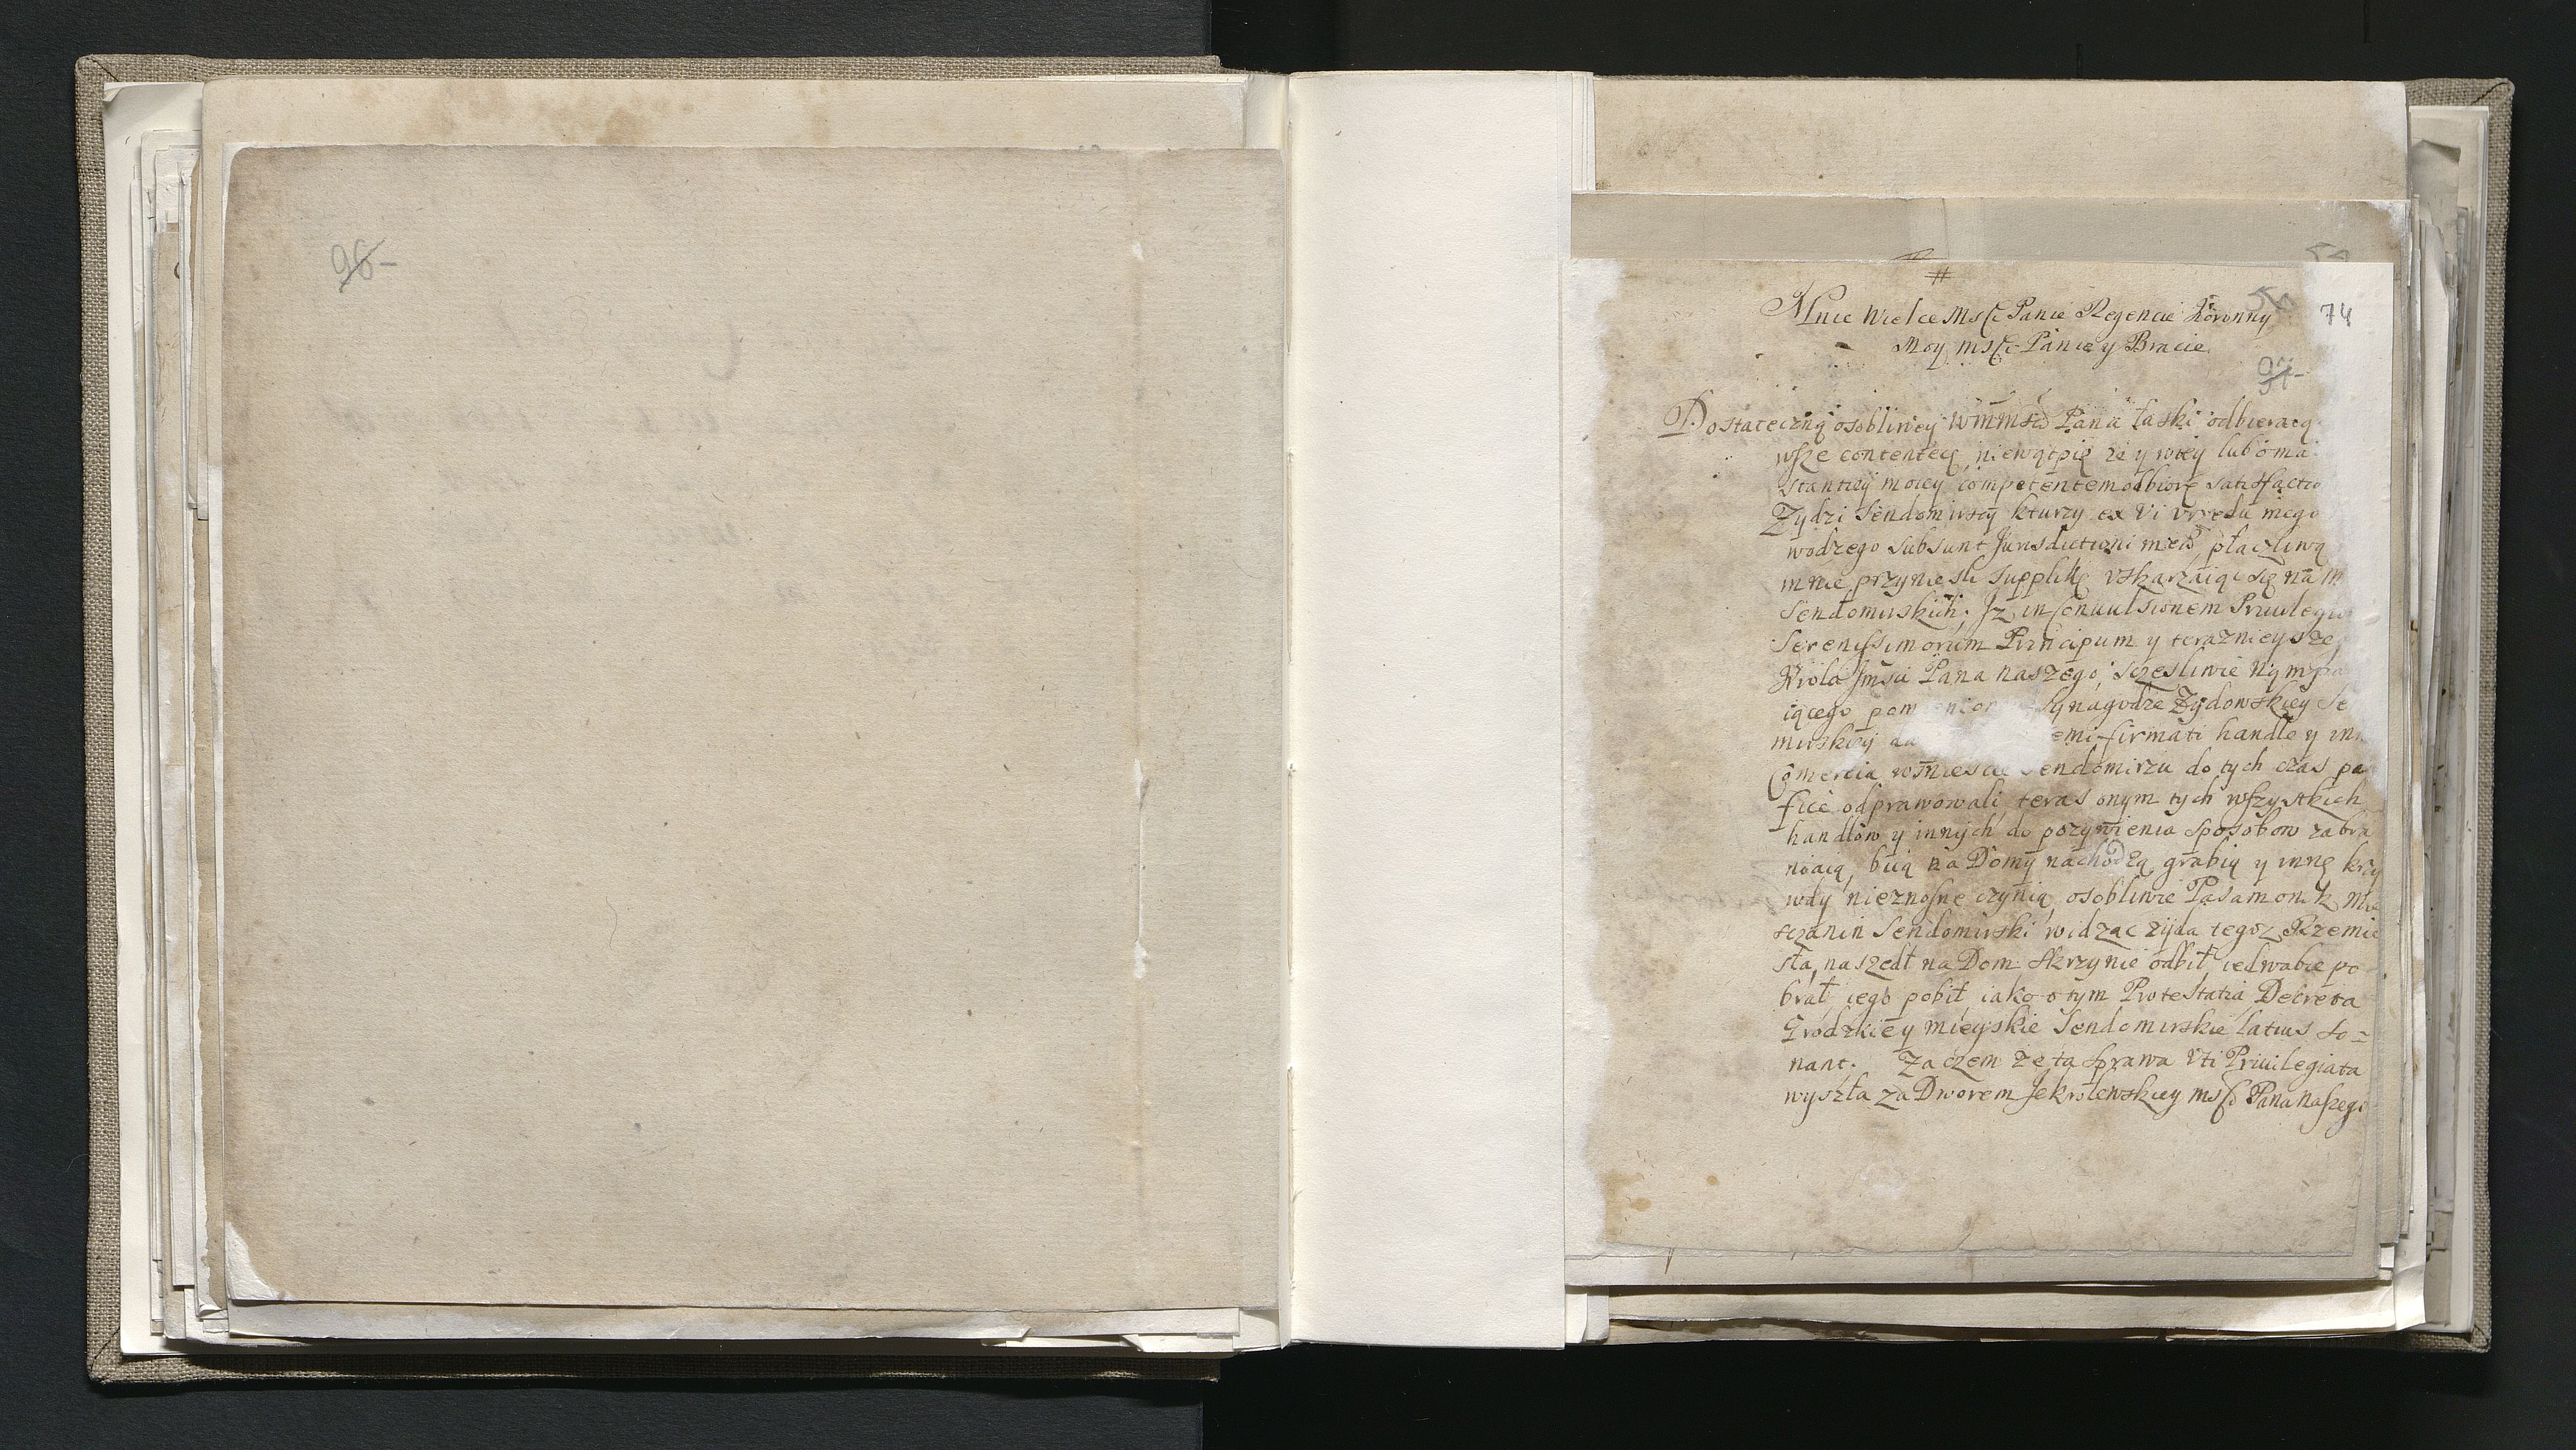 96-
#
Mnie Wielce Msci Panie Regencie Koronny
Moy msci Panie y Bracie
74
97-
Dostateczną osobliwey WmmsCi Pana łaski odbieracą
wsze contentecą, niewątpię że y wtey lubo ma
stantiey moiey competentem odbiorę satisfactio
Zydzi Sendomirscy kturzy ex vi vrzędu mego
wodzego subsunt Jurisdictioni meæ, płaczliwą
mnie przyniesli supplikę vskarzaiąc się na m
Sendomirskich; Jz in Conuulsionem Priuilegio
Serenissimorum Principum y teraznieysze
Krola Jmsci Pana naszego, sczesliwie Nąm pa
iącego pom enion Synagodze Zydowskiey Se
mirskiey da emi firmati handle y in
Comercia wmiescie Sendomirzu do tych czas pa
fice odprawowali, teras onym tych wszystkich
handlow y innych do pozywienia sposobow zabra
niaią, biią na Domy nachodzą, grabią y inne krzy
wdy nieznosne czynią, osobliwie Pasamonik Mie
sczanin Sendomirski widząc zyda tegoz Rzemie
sła, naszedł na Dom skrzynie odbił, iedwabie po
brał, iego pobił, iako o tym Protestatia Decreta
Grodzkie y mieyskie Sendomirskie latius so=
nant. Za czem że ta sprawa Vti Priuilegiata
wyszła za Dworem Jekrolewskiey msci Pana naszego